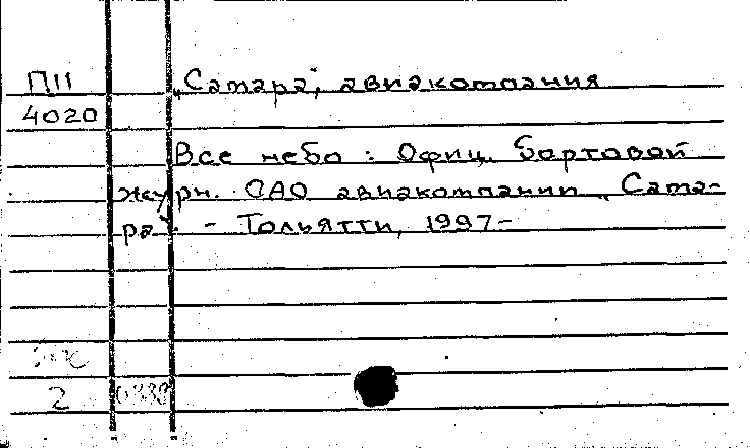 П11 „Самара”, авиакомпания
4020
Все небо : Офиц. бортовой
журн. ОАО авиакомпании „Сама-
ра”. - Тольятти, 1997-
2